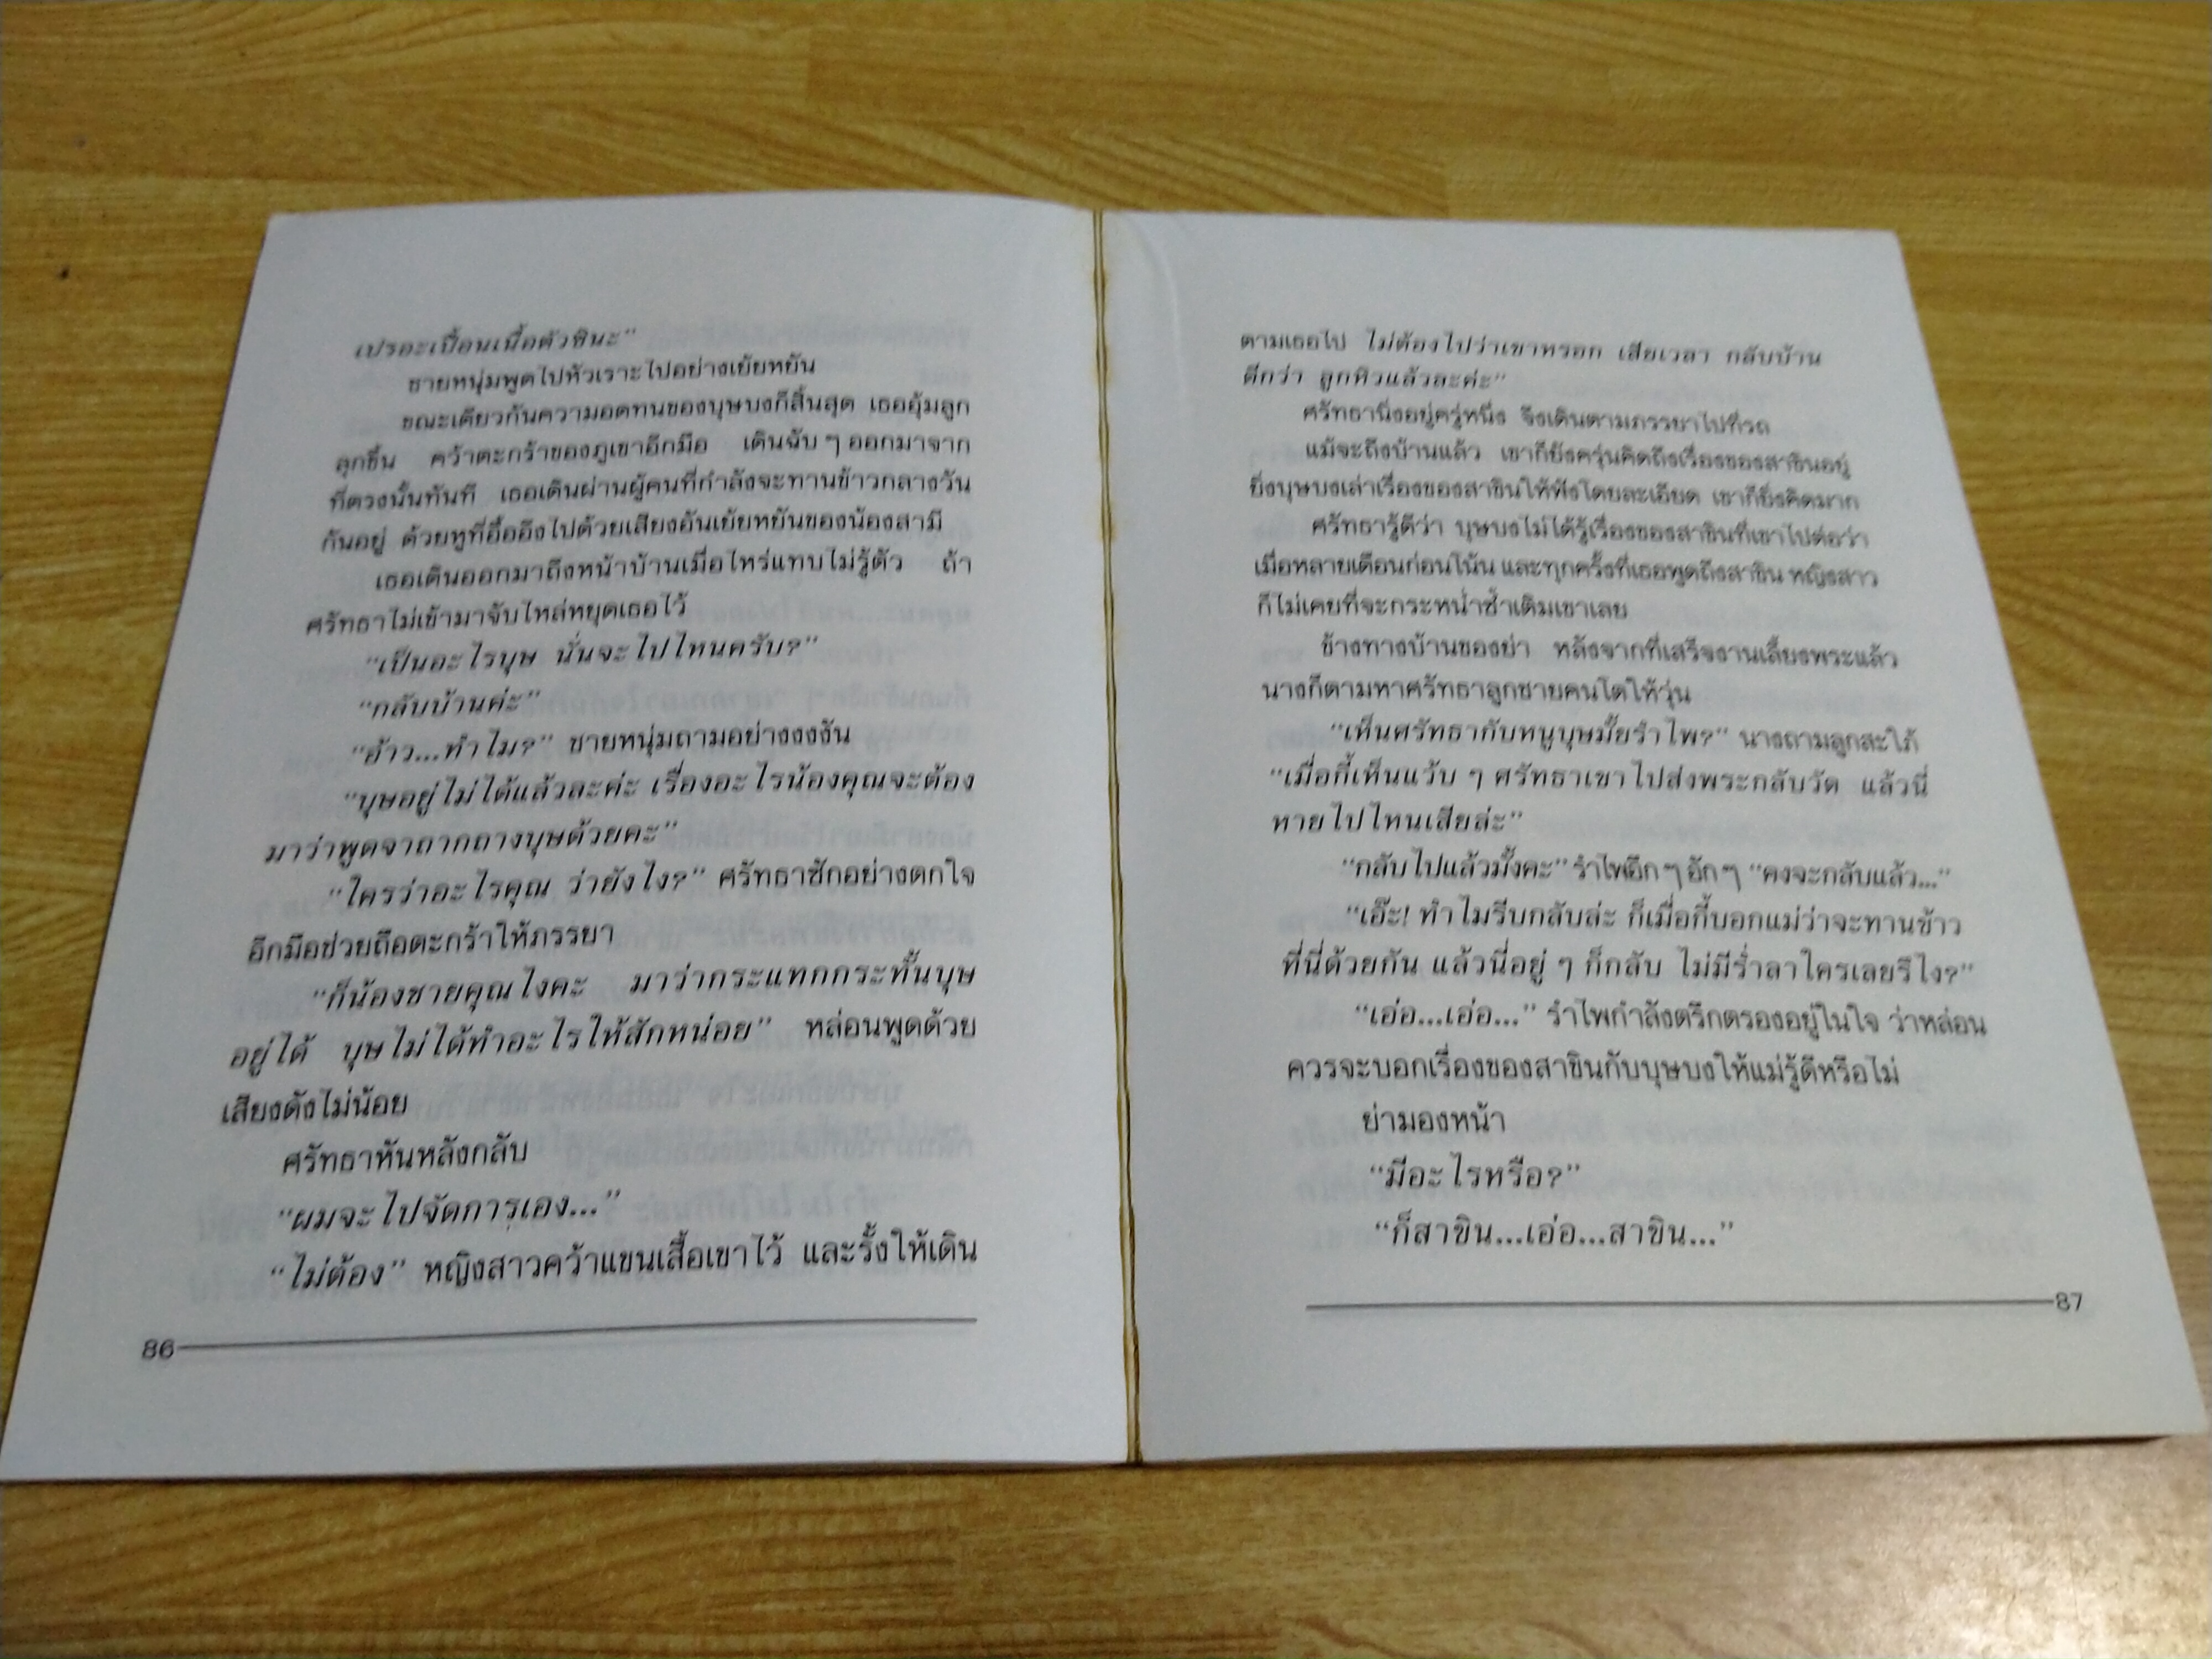 เปรอะเปื้อนเนื้อตัวซินะ”
ชายหนุ่มพูดไปหัวเราะไปอย่างเย้ยหยัน
ขณะเดียวกันความอดทนของบุษบงก็สิ้นสุด เธออุ้มลูก
ลุกขึ้น คว้าตะกร้าของภูเขาอีกมือ เดินฉับ ๆ ออกมาจาก
ที่ตรงนั้นทันที เธอเดินผ่านผู้คนที่กำลังจะทานข้าวกลางวัน
กันอยู่ ด้วยหูที่อื้ออึงไปด้วยเสียงอันเย้ยหยันของน้องสามี
เธอเดินออกมาถึงหน้าบ้านเมื่อไหร่แทบไม่รู้ตัว ถ้า
ศรัทธาไม่เข้ามาจับไหล่หยุดเธอไว้
“เป็นอะไรบุษ นั่นจะไปไหนครับ?”
“กลับบ้านค่ะ”
“อ้าว...ทำไม?” ชายหนุ่มถามอย่างงงงัน
“บุษอยู่ไม่ได้แล้วละค่ะ เรื่องอะไรน้องคุณจะต้อง
มาว่าพูดจาถากถางบุษด้วยคะ”
“ใครว่าอะไรคุณ ว่ายังไง?” ศรัทธาซักอย่างตกใจ
อีกมือช่วยถือตะกร้าให้ภรรยา
“ก็น้องชายคุณไงคะ มาว่ากระแทกกระทั้นบุษ
อยู่ได้ บุษไม่ได้ทำอะไรให้สักหน่อย” หล่อนพูดด้วย
เสียงดังไม่น้อย
ศรัทธาหันหลังกลับ
“ผมจะไปจัดการเอง...”
“ไม่ต้อง” หญิงสาวคว้าแขนเสื้อเขาไว้ และรั้งให้เดิน
86
ตามเธอไป ไม่ต้องไปว่าเขาหรอก เสียเวลา กลับบ้าน
ดีกว่า ลูกหิวแล้วละค่ะ”
ศรัทธานิ่งอยู่ครู่หนึ่ง จึงเดินตามภรรยาไปที่รถ
แม้จะถึงบ้านแล้ว เขาก็ยังครุ่นคิดถึงเรื่องของสาขินอยู่
ยิ่งบุษบงเล่าเรื่องของสาขินให้ฟังโดยละเอียด เขาก็ยิ่งคิดมาก
ศรัทธารู้ดีว่า บุษบงไม่ได้รู้เรื่องของสาขินที่เขาไปต่อว่า
เมื่อหลายเดือนก่อนโน้น และทุกครั้งที่เธอพูดถึงสาขิน หญิงสาว
ก็ไม่เคยที่จะกระหน่ำซ้ำเติมเขาเลย
ข้างทางบ้านของย่า หลังจากที่เสร็จงานเลี้ยงพระแล้ว
นางก็ตามหาศรัทธาลูกชายคนโตให้วุ่น
“เห็นศรัทธากับหนูบุษมั้ยรำไพ?” นางถามลูกสะใภ้
“เมื่อกี้เห็นแว้บ ๆ ศรัทธาเขาไปส่งพระกลับวัด แล้วนี่
หายไปไหนเสียล่ะ”
“กลับไปแล้วมั้งคะ” รำไพอึก ๆ อัก ๆ “คงจะกลับแล้ว...”
“เอ๊ะ! ทำไมรีบกลับล่ะ ก็เมื่อกี้บอกแม่ว่าจะทานข้าว
ที่นี่ด้วยกัน แล้วนี่อยู่ ๆ ก็กลับ ไม่มีร่ำลาใครเลยรึไง?”
“เอ่อ...เอ่อ...” รำไพกำลังตรึกตรองอยู่ในใจ ว่าหล่อน
ควรจะบอกเรื่องของสาขินกับบุษบงให้แม่รู้ดีหรือไม่
ย่ามองหน้า
“มีอะไรหรือ?”
“ก็สาขิน...เอ่อ...สาขิน...”
87